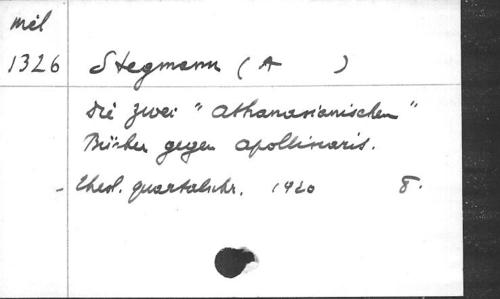 Mél
1326 Stegmann (A )
Die zwei "Athanasianischen"
Bücher gegen Apollinaris.
- Theol. Quartalschr. 1920 8.